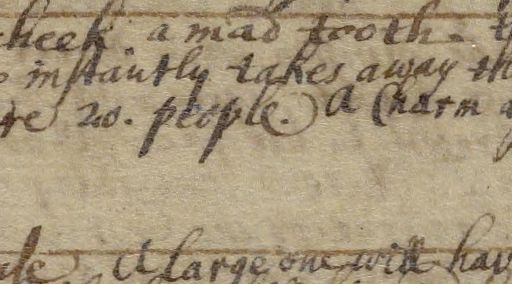 cheek a mad tooth
instantly takes away th
re 20. people. A Charm a
A large one will hav